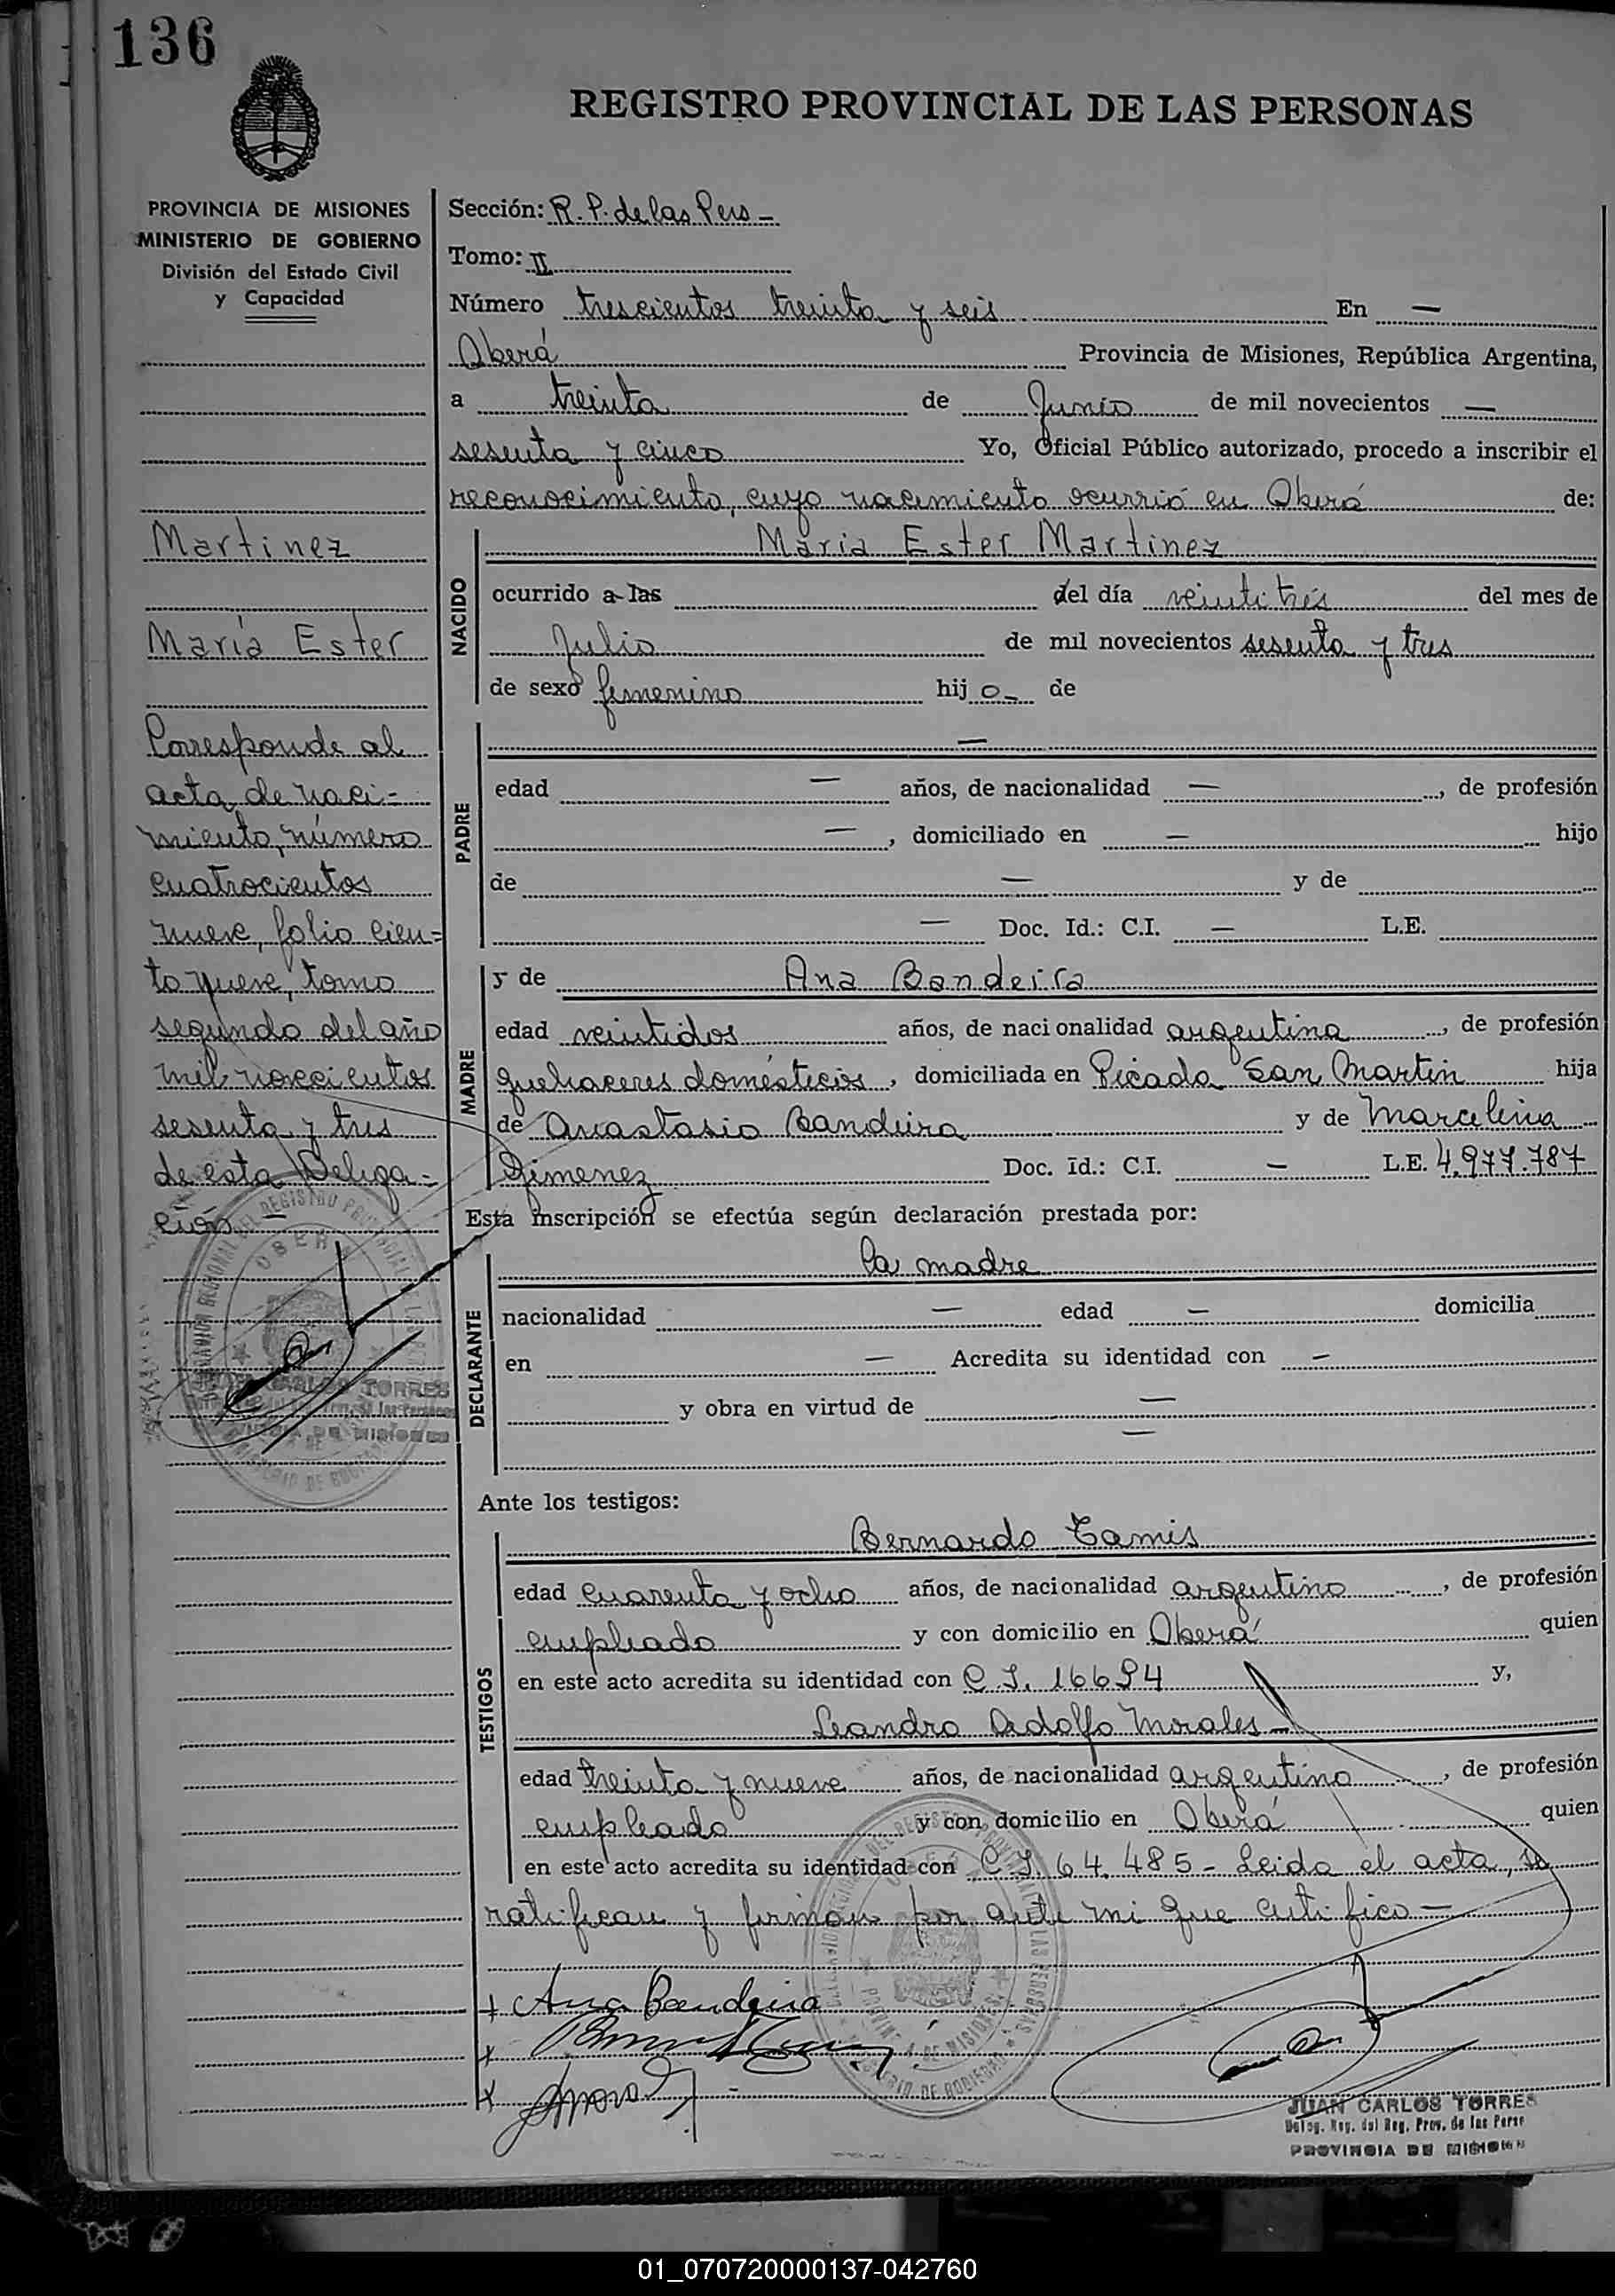 136
REGISTRO PROVINCIAL DE LAS PERSONAS
PROVINCIA DE MISIONES
MINISTERIO DE GOBIERNO
División del Estado Civil
y Capacidad
Martinez
María Ester
Corresponde al
acta de naci-
miento, número
cuatrocientos
nueve, folio cien-
to nueve, tomo
segundo del año
mil novecientos
sesenta y tres
de esta Delega-
ción -
Sección: R. P. de las Pers -
Tomo: II
Número trescientos treinta y seis En —
Oberá Provincia de Misiones, República Argentina,
a treinta de Junio de mil novecientos —
sesenta y cinco Yo, Oficial Público autorizado, procedo a inscribir el
reconocimiento, cuyo nacimiento ocurrió en Oberá de:
NACIDO
Maria Ester Martinez
ocurrido a las del día veintitrés del mes de
Julio de mil novecientos sesenta y tres
de sexo femenino hij o- de
PADRE
—
edad — años, de nacionalidad — , de profesión
— , domiciliado en — hijo
de — y de
— Doc. Id.: C.I. — L.E.
MADRE
y de Ana Bandeira
edad veintidos años, de nacionalidad argentina , de profesión
quehaceres domésticos , domiciliada en Picada San Martin hija
de Anastasio Bandeira y de Marcelina
Gimenez Doc. Id.: C.I. — L.E. 4.977.787
Esta inscripción se efectúa según declaración prestada por:
DECLARANTE
la madre
nacionalidad — edad — domicilia
en — Acredita su identidad con —
y obra en virtud de —
—
Ante los testigos:
TESTIGOS
Bernardo Tamis
edad cuarenta y ocho años, de nacionalidad argentino , de profesión
empleado y con domicilio en Oberá quien
en este acto acredita su identidad con C I. 16694 y,
Leandro Adolfo Morales -
edad treinta y nueve años, de nacionalidad argentino , de profesión
empleado y con domicilio en Oberá quien
en este acto acredita su identidad con C I. 64.485 - Leida el acta, la
ratifican y firman por ante mi que certifico -
+ Ana Bandeira
JUAN CARLOS TORRES
Deleg. Reg. del Reg. Prov. de las Pers
PROVINCIA DE MISIONES
01_070720000137-042760